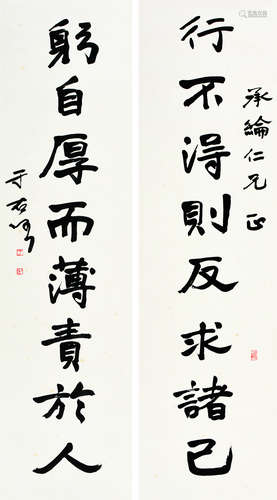 承綸仁兄正
行不得則反求諸己
躬自厚而薄責於人
于右任